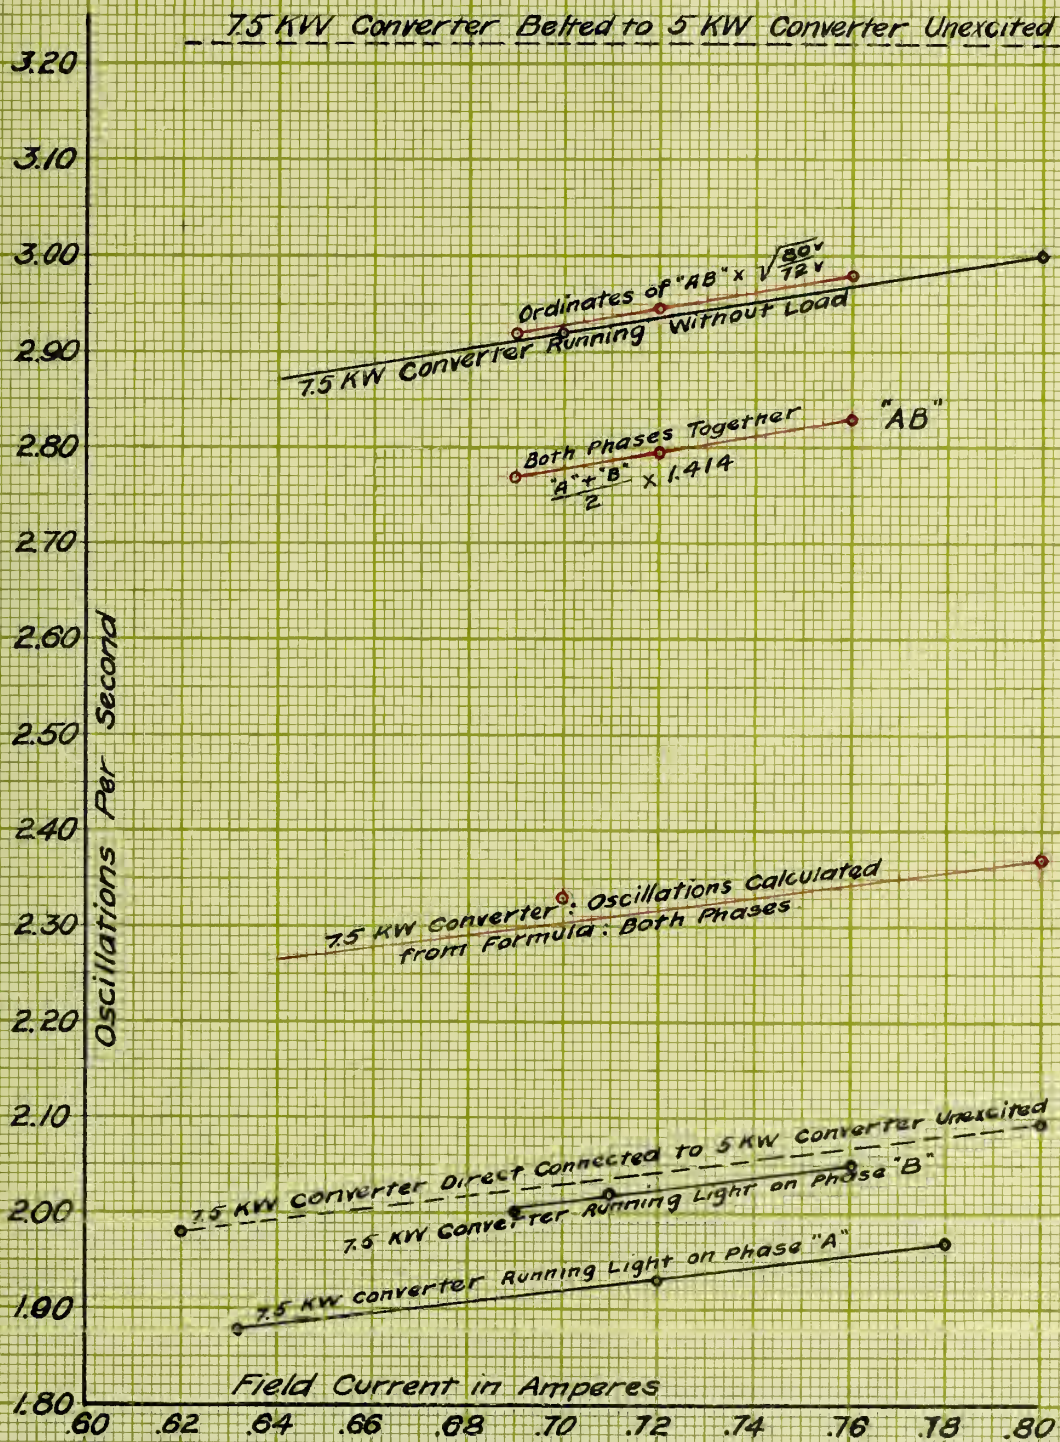 7.5 KW Converter Belted to 5 KW Converter Unexcited
3.20
3.10
3.00
2.90
2.80
2.70
2.60
2.50
2.40
2.30
2.20
2.10
2.00
1.90
1.80
Oscillations Per Second
Ordinates of "AB" x √80v/72v
7.5 KW Converter Running Without Load
Both Phases Together
"AB"
"A" + "B"/2 x 1.414
7.5 KW Converter : Oscillations Calculated
from Formula : Both Phases
7.5 KW Converter Direct Connected to 5 KW Converter Unexcited
7.5 KW Converter Running Light on Phase "B"
7.5 KW Converter Running Light on Phase "A"
Field Current in Amperes
.60 .62 .64 .66 .68 .70 .72 .74 .76 .78 .80